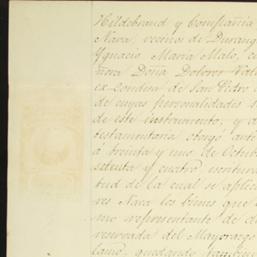 Hildebrand y Compañia
Nava, vecinos de Durang
Ygnacio Maria Malo, c
ñora Doña Dolores Val
ex-condesa de San Pedro
de cuyas personalidades
de este instrumento; y d
testamentaria otorgó ante
á treinta y uno de Octub
setenta y cuatro
tud de la cual se aplica
res Nava los bienes que
mo representante de d
reservada del Mayorazgo
lamo, quedando